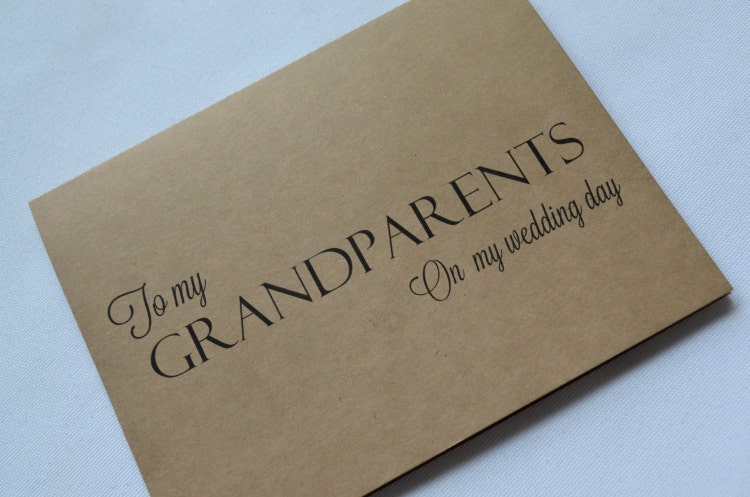 To my
GRANDPARENTS
On my wedding day